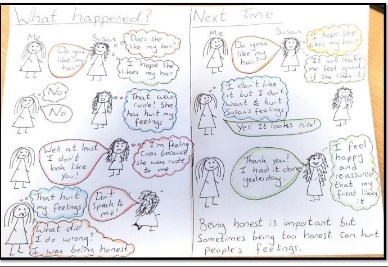 What happened?
Me
Susan
Do you
like my
hair?
Does she
like my hair?
I hope she
likes my hair
No
No
That was
rude! She
has hurt my
feelings
Well at least
I don't
look like
You!
I'm feeling
cross because
she was rude
to me
That hurt
my feelings
Don't
Speak to
me!
What did
I do wrong?
I was being honest
Next Time
Me
Susan
Do you
like my
hair?
I hope she
likes my hair
It will make
me feel
if she likes it
I don't like
it but I don't
want to hurt
Susan's feelings
Yes! It looks nice!
Thank you!
I had it done
yesterday
I feel
happy
and
reassured
that my
friend likes
it
Being honest is important but
Sometimes being too honest can hurt
people's feelings.